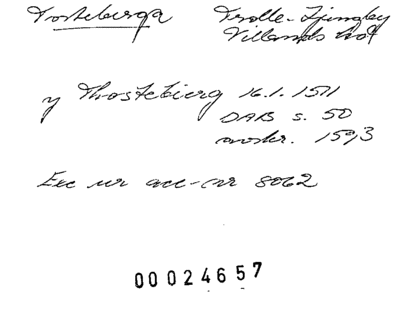 Tosteberga Trolle-Ljungby
Villands hd
y Thostebierg 16.1. 1511
DAB s. 50
avskr. 1593
Exc ur acc-nr 8062
00024657